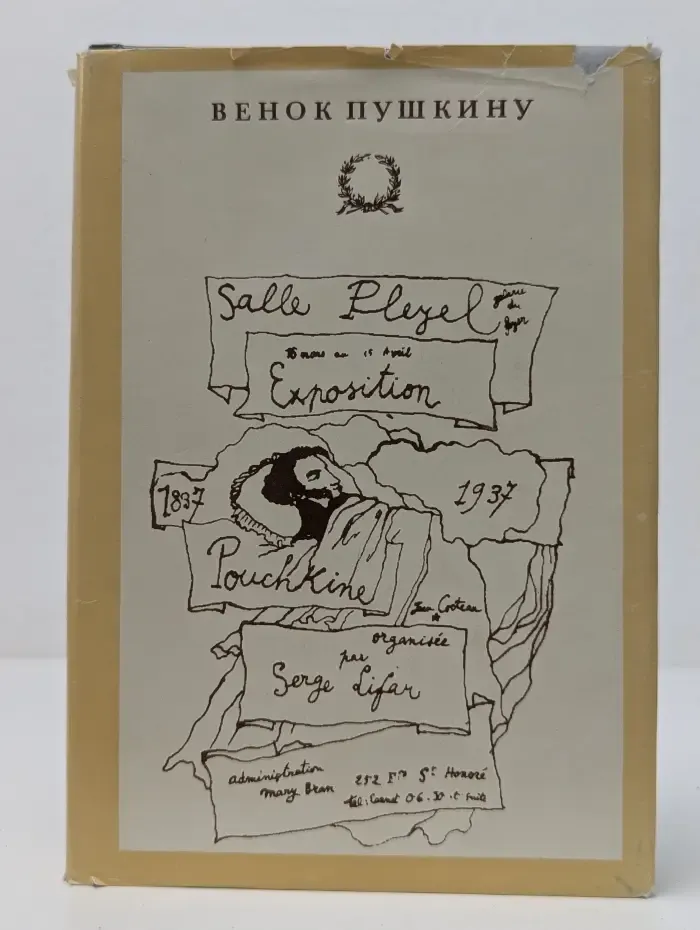 ВЕНОК ПУШКИНУ
Salle Pleyel
galerie
du
foyer
16 mars au 15 Avril
Exposition
1837
1937
Pouchkine
Jean Cocteau
organisée
par
Serge Lifar
administration
Mary Bran
252 Fg St Honoré
tél: Carnot 06.30